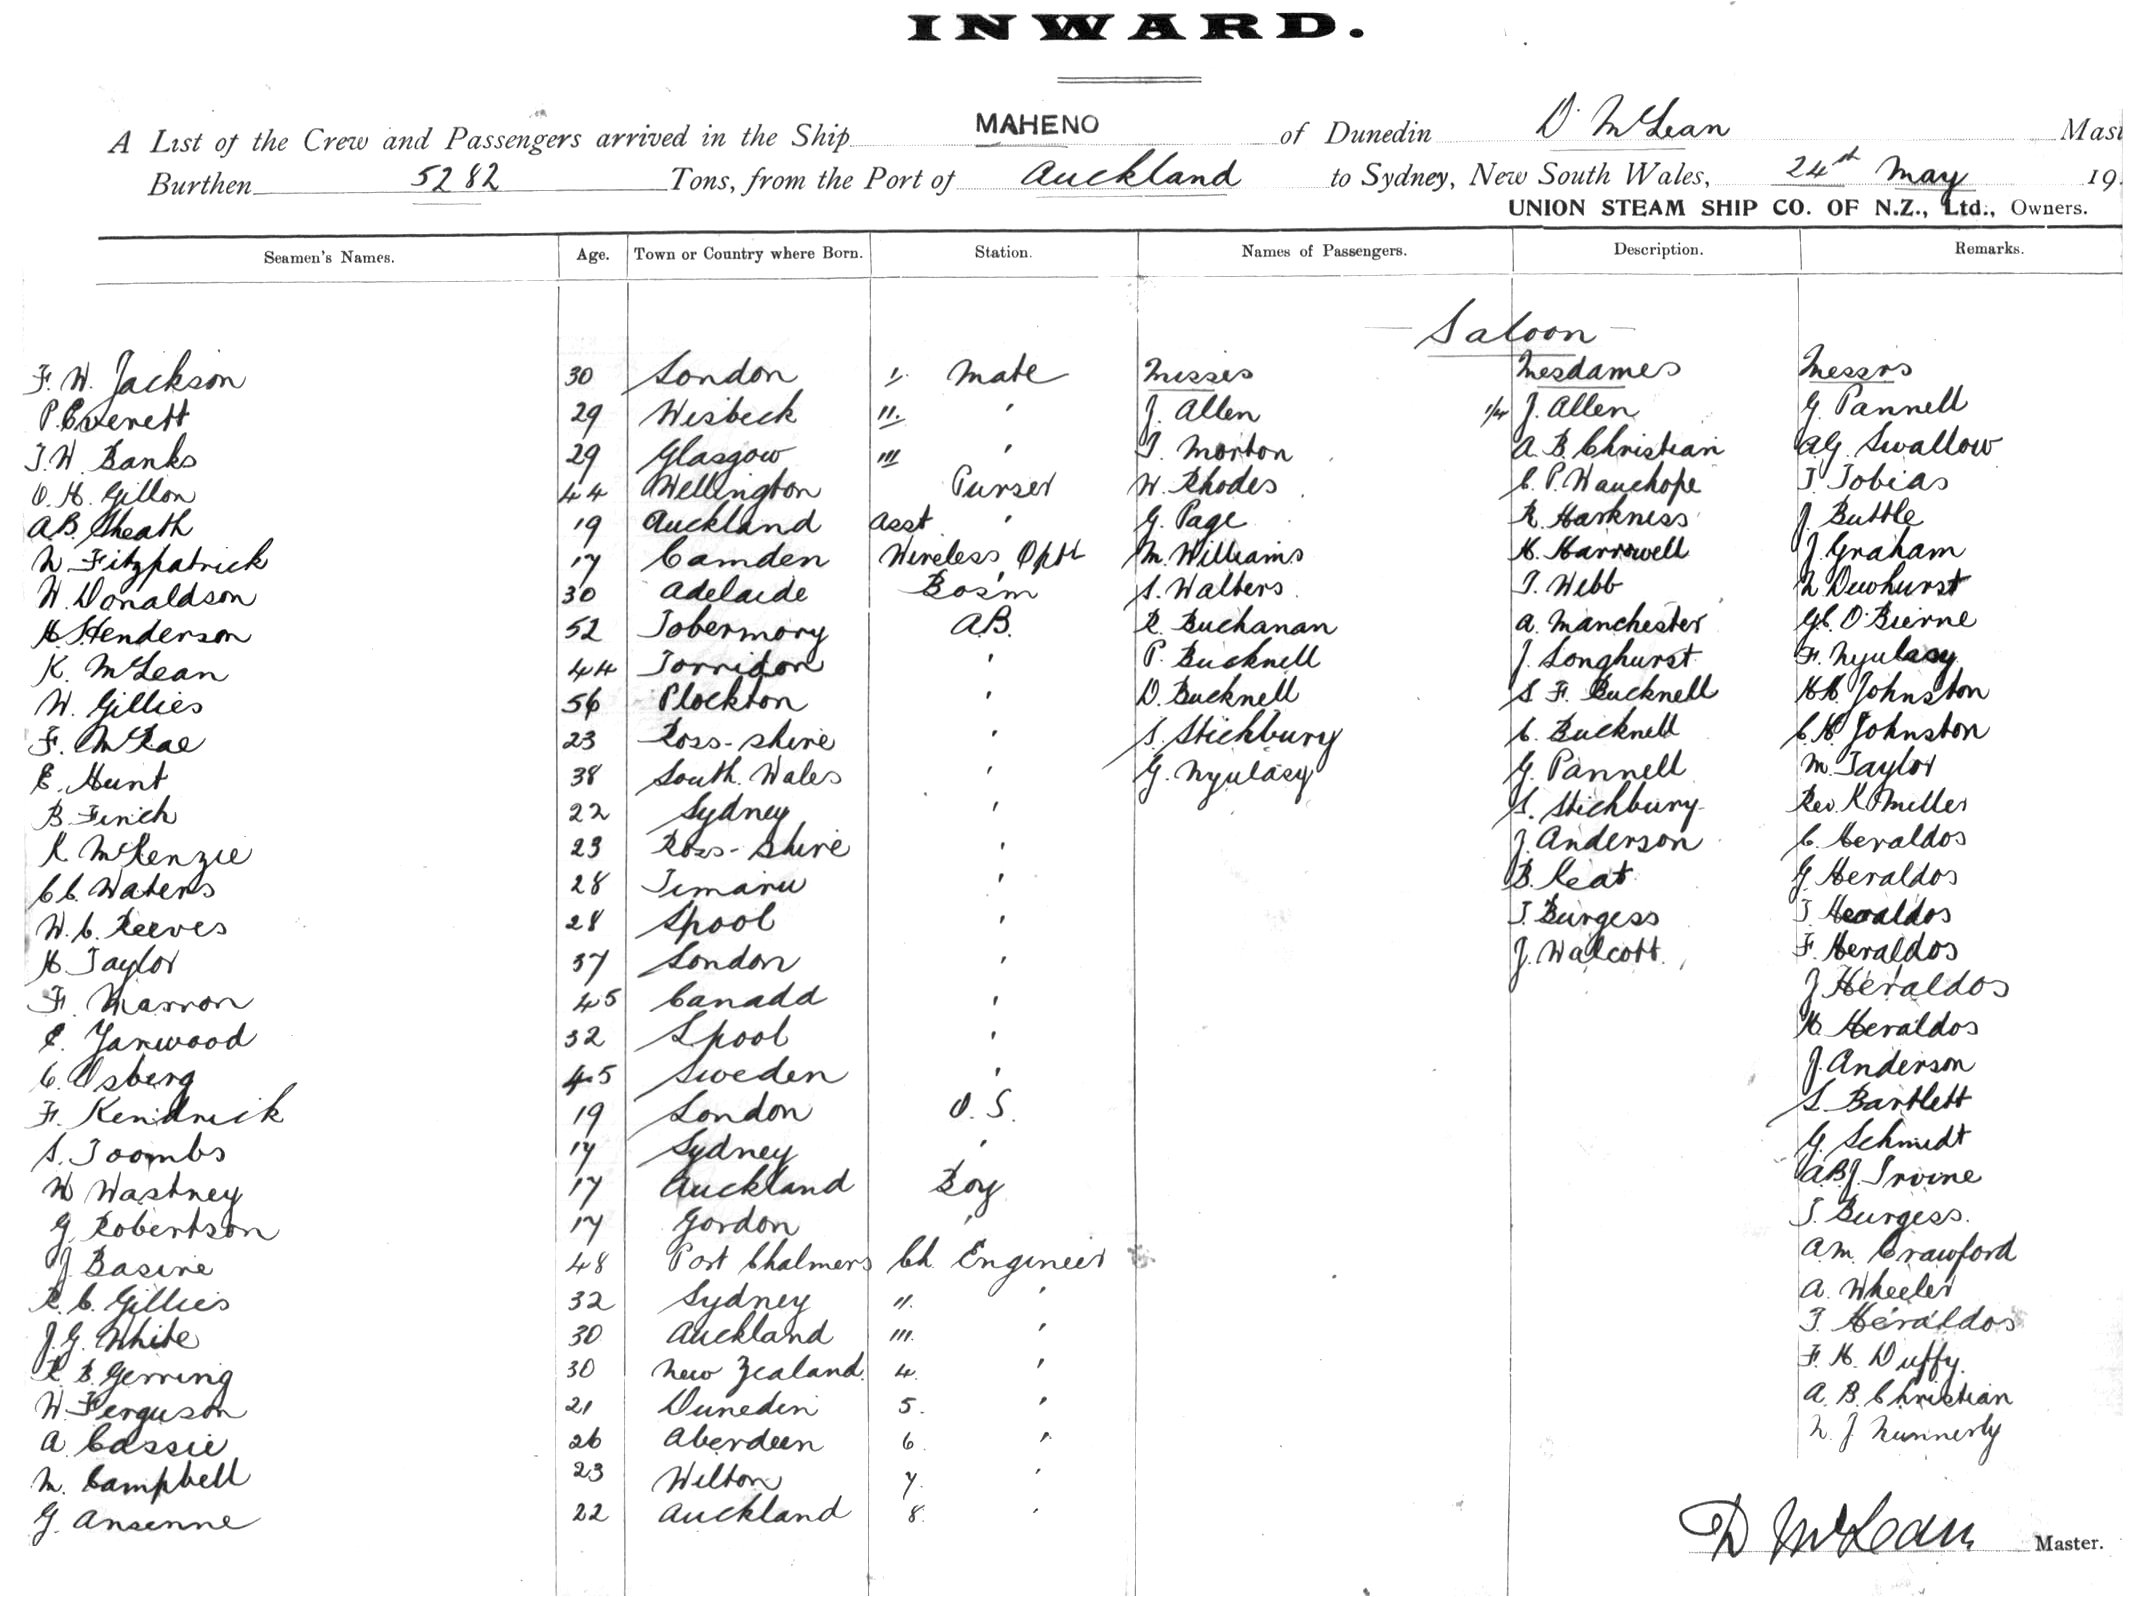 INWARD.
A List of the Crew and Passengers arrived in the Ship MAHENO of Dunedin D. McLean Mast
Burthen 5282 Tons, from the Port of Auckland to Sydney, New South Wales, 24th May 19
UNION STEAM SHIP CO. OF N.Z., Ltd., Owners.
Seamen's Names. Age. Town or Country where Born. Station. Names of Passengers. Description. Remarks.
Saloon
F. W. Jackson 30 London I. Mate Misses Mesdames Messrs
P. Everett 29 Wisbeck II. ' J. Allen J. Allen G. Pannell
J. W. Banks 29 Glasgow III ' T. Morton A. B. Christian A G. Swallow
O. H. Gillon 44 Wellington Purser W. Rhodes C. P. Wauchope T. Tobias
A. B. Sheath 19 Auckland Asst ' G. Page R. Harkness J. Buttle
N. Fitzpatrick 17 Camden Wireless Optr M. Williams H. Harrowell J. Graham
W. Donaldson 30 Adelaide Bos'm S. Walters T. Webb N Dewhurst
H. Henderson 52 Tobermory A.B. R. Buchanan A. Manchester G C. O'Bierne
K. McLean 44 Torridon ' P. Bucknell J. Longhurst F. Nyulasy
W. Gillies 56 Plockton ' D. Bucknell S F. Bucknell H H. Johnston
F. McRae 23 Ross-shire ' S. Stichbury C. Bucknell C. H. Johnston
E. Hunt 38 South Wales ' G. Nyulasy G. Pannell M. Taylor
B. Finch 22 Sydney ' S. Stichbury Rev. K. Miller
K McKenzie 23 Ross-shire ' J. Anderson C. Heraldos
C C. Waters 28 Timaru ' B. Keat G. Heraldos
W. C. Reeves 28 Lpool ' T. Burgess T. Heraldos
H Taylor 37 London ' J. Walcott. F. Heraldos
F. Marron 45 Canada ' J. Heraldos
E. Yarwood 32 Lpool ' H. Heraldos
C. Osberg 45 Sweden ' J. Anderson
F. Kendrick 19 London O. S. S. Bartlett
S. Toombs 17 Sydney ' G. Schmidt
W Wastney 17 Auckland Boy A. B. J. Irvine
G. Robertson 17 Gordon ' T. Burgess.
J Basire 48 Port Chalmers Ch. Engineer A. M. Crawford
R. C. Gillies 32 Sydney II. ' A. Wheeler
J. G. White 30 Auckland III. ' T. Heraldos
R B. Gerring 30 New Zealand 4. ' F. H. Duffy.
W. Ferguson 21 Dunedin 5. ' A. B. Christian
A Cassie 26 Aberdeen 6. ' N. J. Nunnerly
M. Campbell 23 Wilton 7. '
G. Ansenne 22 Auckland 8. '
D McLean Master.